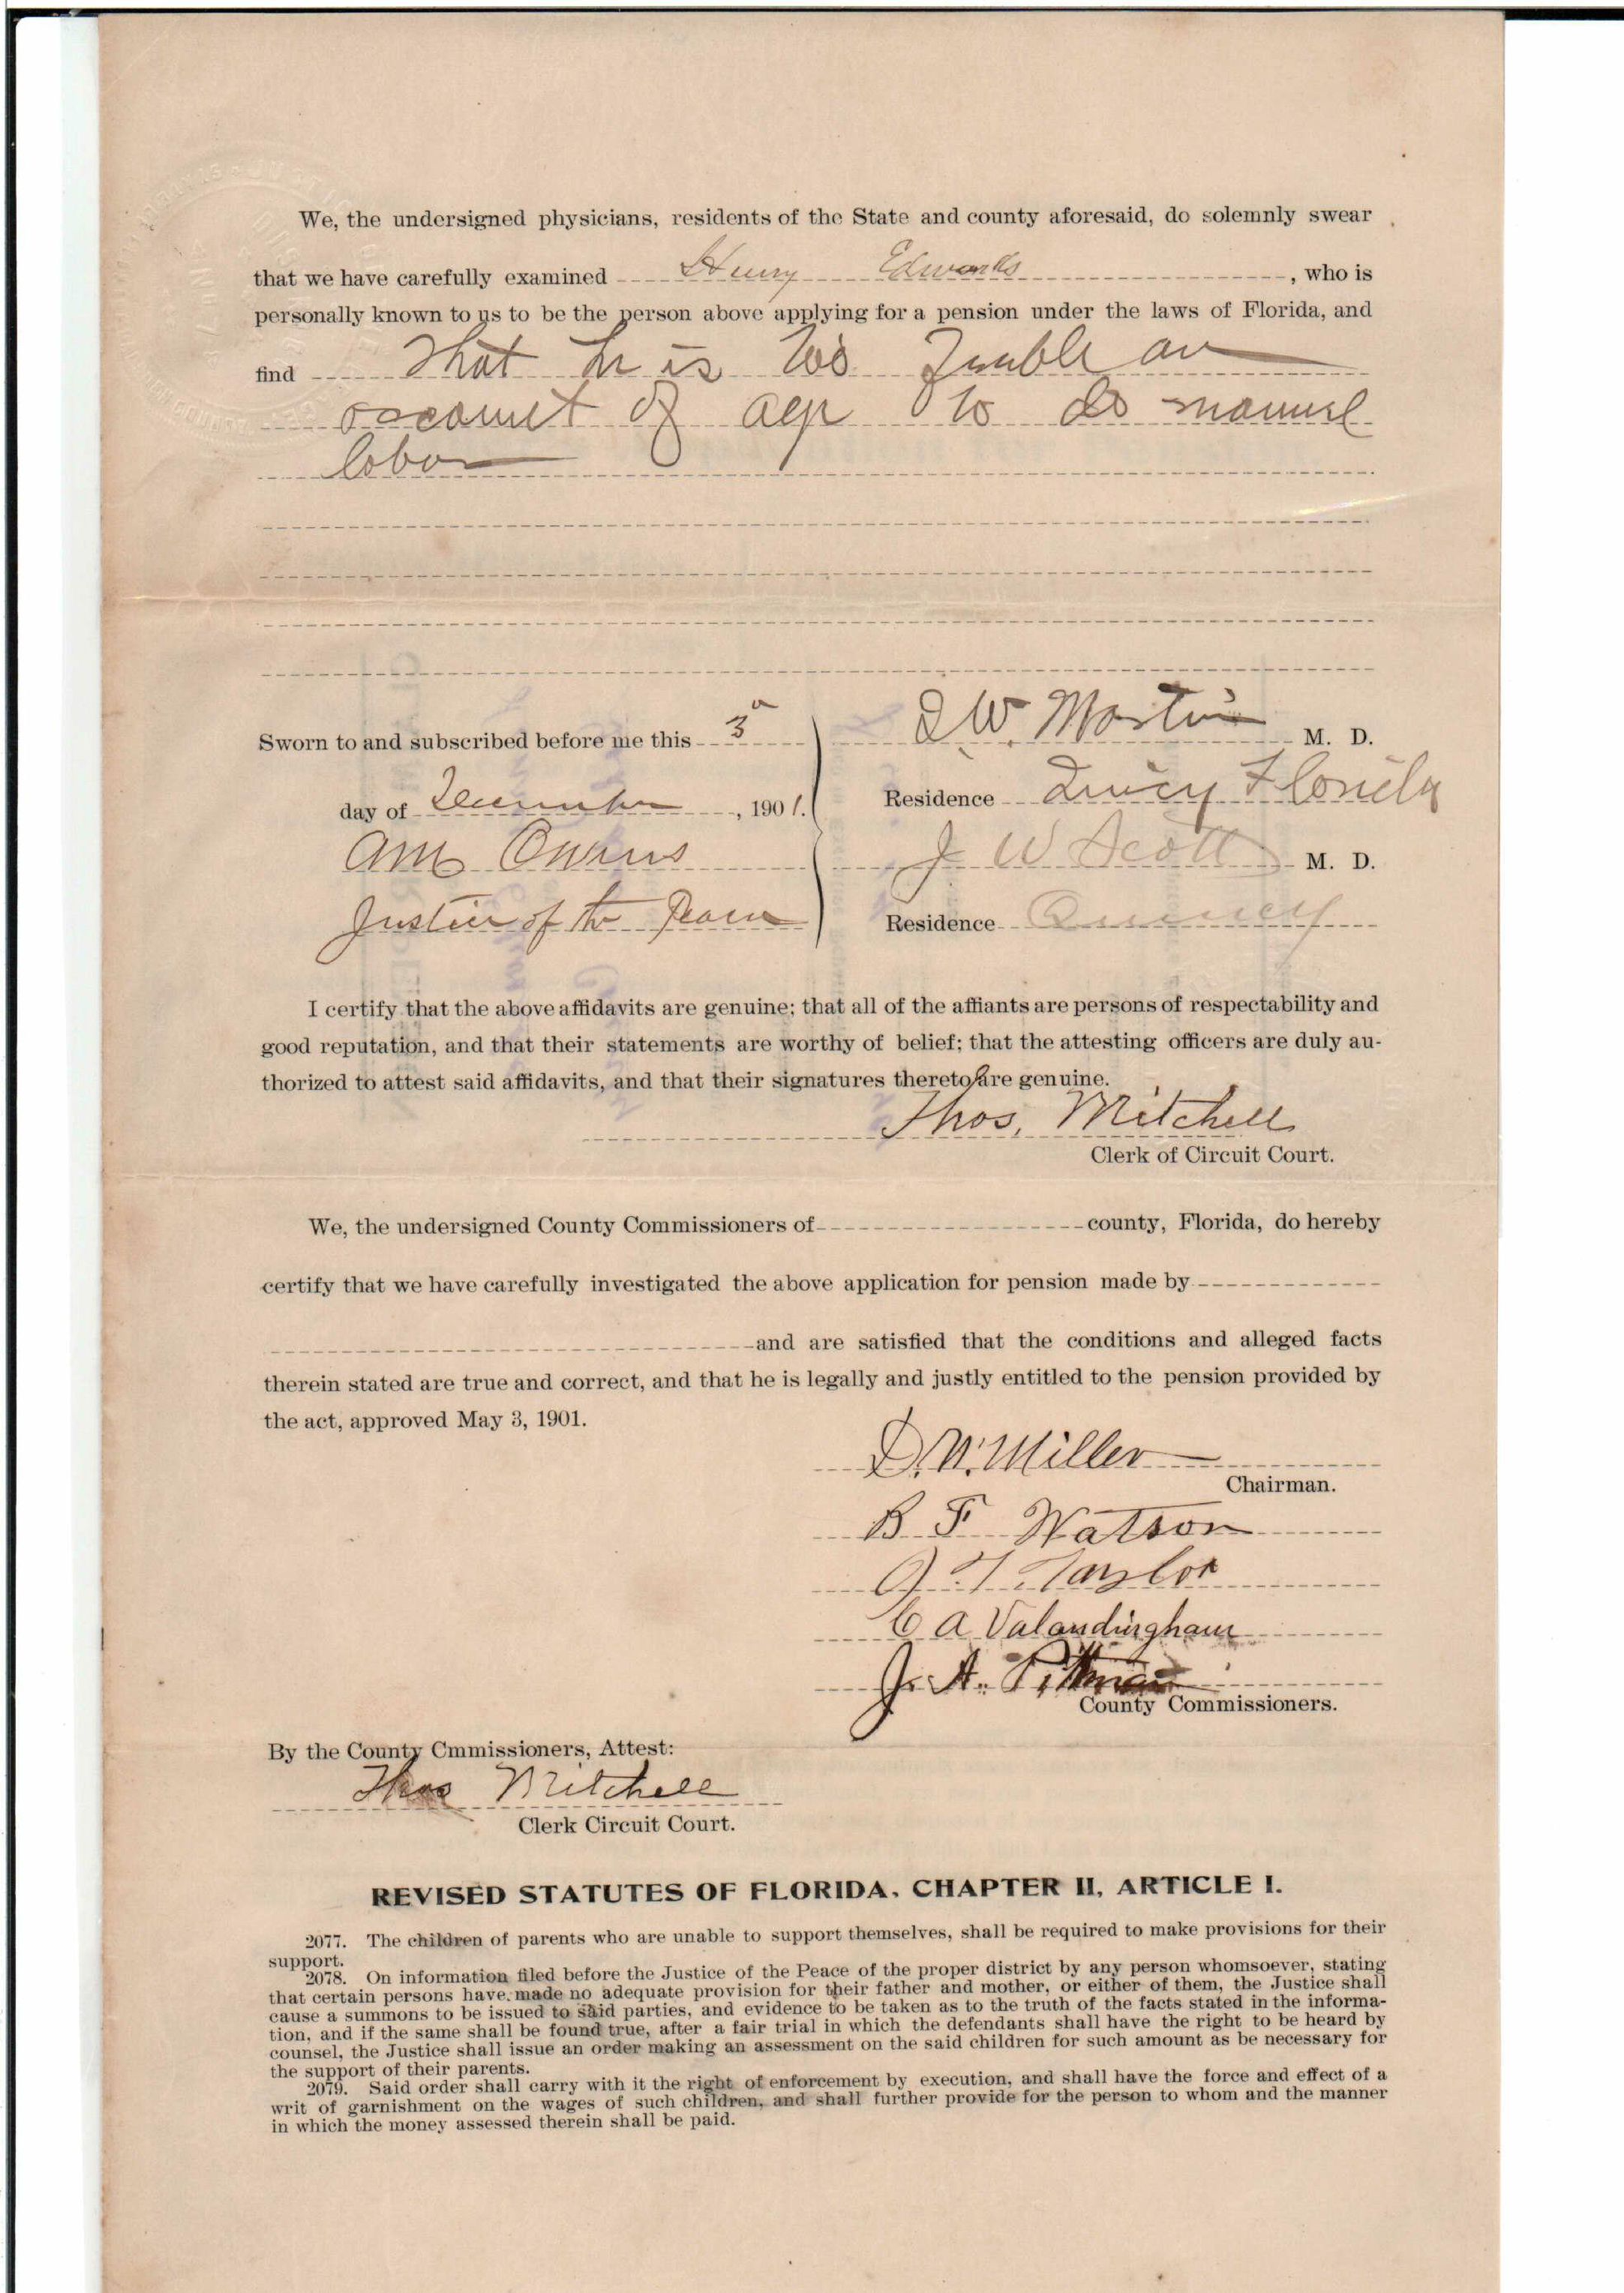 We, the undersigned physicians, residents of the State and county aforesaid, do solemnly swear
that we have carefully examined Henry Edwards, who is
personally known to us to be the person above applying for a pension under the laws of Florida, and
find that he is too feeble on
account of age to do manuel
labor
Sworn to and subscribed before me this 3
W. Martin M. D.
day of December, 1901.
Residence Quincy Florida
Owens
J W Scott M. D.
Justice of the Peace
Residence Quincy
I certify that the above affidavits are genuine; that all of the affiants are persons of respectability and
good reputation, and that their statements are worthy of belief; that the attesting officers are duly au-
thorized to attest said affidavits, and that their signatures thereto are genuine.
Thos. Mitchell
Clerk of Circuit Court.
We, the undersigned County Commissioners of county, Florida, do hereby
certify that we have carefully investigated the above application for pension made by
and are satisfied that the conditions and alleged facts
therein stated are true and correct, and that he is legally and justly entitled to the pension provided by
the act, approved May 3, 1901.
Miller
Chairman.
B F Watson
Taylor
C A Valandingham
J. A. Pittman
County Commissioners.
By the County Cmmissioners, Attest:
Thos Mitchell
Clerk Circuit Court.
REVISED STATUTES OF FLORIDA, CHAPTER II, ARTICLE I.
2077. The children of parents who are unable to support themselves, shall be required to make provisions for their
support.
2078. On information filed before the Justice of the Peace of the proper district by any person whomsoever, stating
that certain persons have made no adequate provision for their father and mother, or either of them, the Justice shall
cause a summons to be issued to said parties, and evidence to be taken as to the truth of the facts stated in the informa-
tion, and if the same shall be found true, after a fair trial in which the defendants shall have the right to be heard by
counsel, the Justice shall issue an order making an assessment on the said children for such amount as be necessary for
the support of their parents.
2079. Said order shall carry with it the right of enforcement by execution, and shall have the force and effect of a
writ of garnishment on the wages of such children, and shall further provide for the person to whom and the manner
in which the money assessed therein shall be paid.